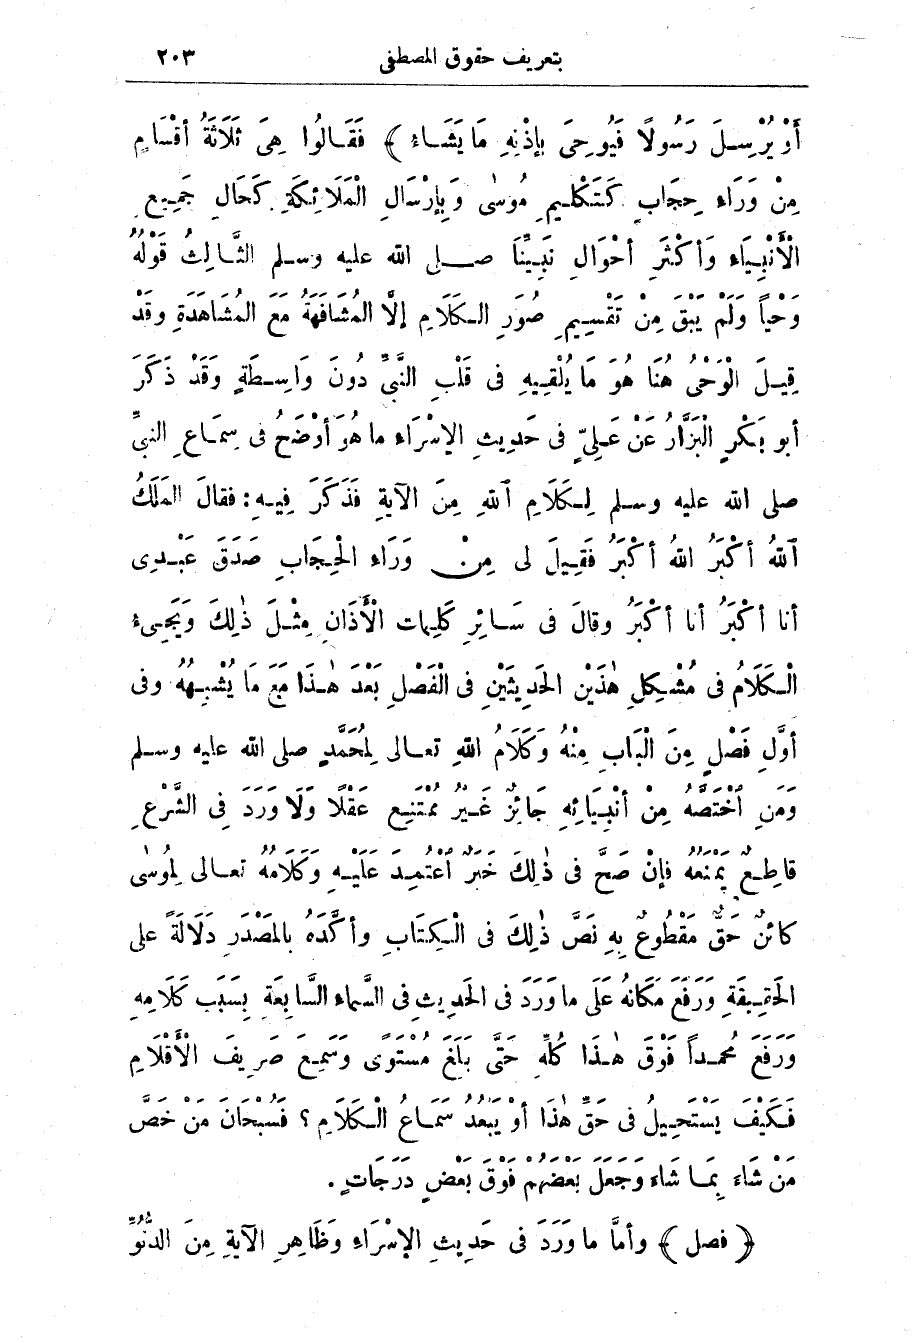 بتعريف حقوق المصطفى ٢٠٣
أَوْ يُرْسِلَ رَسُولًا فَيُوحِىَ بِإِذْنِهِ مَا يَشَاءُ ﴾ فَقَالُوا هِىَ ثَلَاثَةُ أَقْسَامٍ
مِنْ وَرَاءِ حِجَابٍ كَتَكْلِيمِ مُوسٰى وَبِإِرْسَالِ الْمَلَائِكَةِ كَحَالِ جَمِيعِ
الْأَنْبِيَاءِ وَأَكْثَرِ أَحْوَالِ نَبِيِّنَا صلى الله عليه وسلم الثَّالِثُ قَوْلُهُ
وَحْياً وَلَمْ يَبْقَ مِنْ تَقْسِيمِ صُوَرِ الكَلَامِ إِلَّا المُشَافَهَةُ مَعَ المُشَاهَدَةِ وقَدْ
قِيلَ الْوَحْىُ هُنَا هُوَ مَا يُلْقِيهِ فى قَلْبِ النَّبِىِّ دُونَ وَاسِطَةٍ وَقَدْ ذَكَرَ
أبو بَكْرٍ الْبَزَّارُ عَنْ عَلِىّ فى حَدِيثِ الإِسْرَاءِ ما هُوَ أَوْضَحُ فى سِمَاعِ النبىِّ
صلى الله عليه وسلم لِكَلَامِ ٱللهِ مِنَ الآيَةِ فَذَكَرَ فِيهِ : فقالَ المَلَكُ
ٱللهُ أَكْبَرُ اللهُ أَكْبَرُ فَقِيلَ لى مِنْ وَرَاءِ الْحِجَابِ صَدَقَ عَبْدِى
أنا أَكْبَرُ أنا أَكْبَرُ وقالَ فى سَائِرِ كَلِمات الْأَذَانِ مِثْلَ ذٰلِكَ وَيَجِىءُ
الْكَلَامُ فى مُشْكِلِ هٰذَيْنِ الحَدِيثَيْنِ فى الْفَصْلِ بَعْدَ هٰذَا مَعَ مَا يُشْبِهُهُ وفى
أوَّلِ فَصْلٍ مِنَ الْبَابِ مِنْهُ وَكَلَامُ اللهِ تعالى لِمُحَمَّدٍ صلى الله عليه وسلم
وَمَنِ ٱخْتَصَّهُ مِنْ أَنْبِيَائِهِ جَائِزٌ غَيْرُ مُمْتَنِعٍ عَقْلًا وَلَا وَرَدَ فى الشَّرْعِ
قاطِعٌ يَمْنَعُهُ فإنْ صَحَّ فى ذٰلِكَ خَبَرٌ ٱعْتُمِدَ عَلَيْهِ وَكَلَامُهُ تعالى لِمُوسٰى
كائنٌ حَقٌّ مَقْطُوعٌ بِهِ نَصَّ ذٰلِكَ فى الْكِتَابِ وأَكَّدَهُ بالمَصْدَرِ دَلَالَةً على
الحَقِيقَةِ وَرَفَعَ مَكَانَهُ عَلَى ما وَرَدَ فى الحَدِيثِ فى السَّماءِ السَّابِعَةِ بِسَبَبِ كَلَامِهِ
وَرَفَعَ مُحَمداً فَوْقَ هٰذَا كُلِّهِ حَتَّى بَلَغَ مُسْتَوًى وَسَمِعَ صَرِيفَ الْأَقْلَامِ
فَكَيْفَ يَسْتَحِيلُ فى حَقِّ هٰذَا أَوْ يَبْعُدُ سَمَاعُ الْكَلَامِ ؟ فَسُبْحَانَ مَنْ خَصَّ
مَنْ شَاءَ بِمَا شَاءَ وَجَعَلَ بَعْضَهُمْ فَوْقَ بَعْضٍ دَرَجَاتٍ .
﴿ فصل ﴾ وأمَّا ما وَرَدَ فى حَدِيثِ الإِسْرَاءِ وَظَاهِرِ الآيَةِ مِنَ الدُّنُوِّ